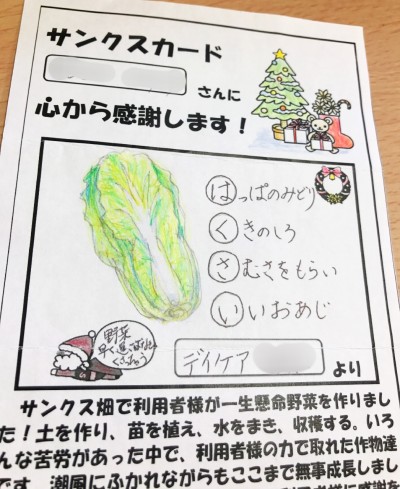 サンクスカード
さんに
心から感謝します！
はっぱのみどり
くきのしろ
さむさをもらい
いいおあじ
野菜
デイケア
より
サンクス畑で利用者様が一生懸命野菜を作りまし
た！土を作り、苗を植え、水をまき、収穫する。いろ
んな苦労があった中で、利用者様の力で取れた作物達
です。潮風にふかれながらもここまで無事成長しまし